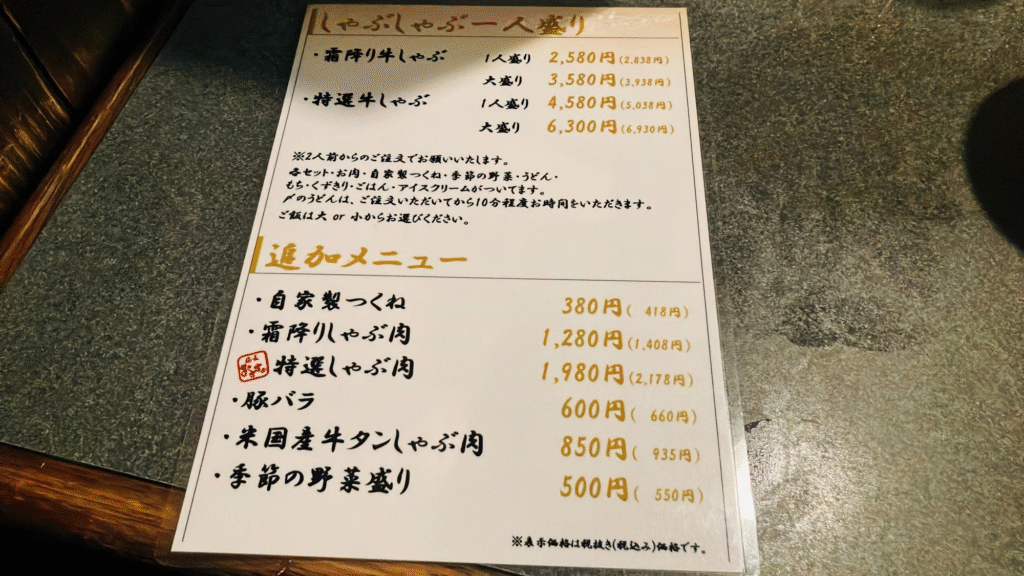 しゃぶしゃぶ一人盛り
・霜降り牛しゃぶ 1人盛り 2,580円(2,838円)
大盛り 3,580円(3,938円)
・特選牛しゃぶ 1人盛り 4,580円(5,038円)
大盛り 6,300円(6,930円)
※2人前からのご注文でお願いいたします。
各セット・お肉・自家製つくね・季節の野菜・うどん・
もち・くずきり・ごはん・アイスクリームがついてます。
〆のうどんは、ご注文いただいてから10分程度お時間をいただきます。
ご飯は大 or 小からお選びください。
追加メニュー
・自家製つくね 380円( 418円)
・霜降りしゃぶ肉 1,280円(1,408円)
特選しゃぶ肉 1,980円(2,178円)
・豚バラ 600円( 660円)
・米国産牛タンしゃぶ肉 850円( 935円)
・季節の野菜盛り 500円( 550円)
※表示価格は税抜き(税込み)価格です。